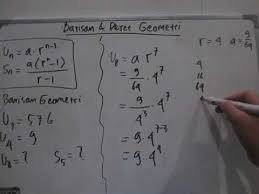 Barisan & Deret Geometri
Un = a·r^(n-1)
Sn = a(r^n-1) / r-1
Barisan Geometri
U6 = 576
U3 = 9
U8 = ? S5 = ?
U8 = a r^7
= 9/64 · 4^7
= 9/4^3 · 4^7
= 9·4^(7-3)
= 9·4^4
r = 4 a = 9/64
4
16
64